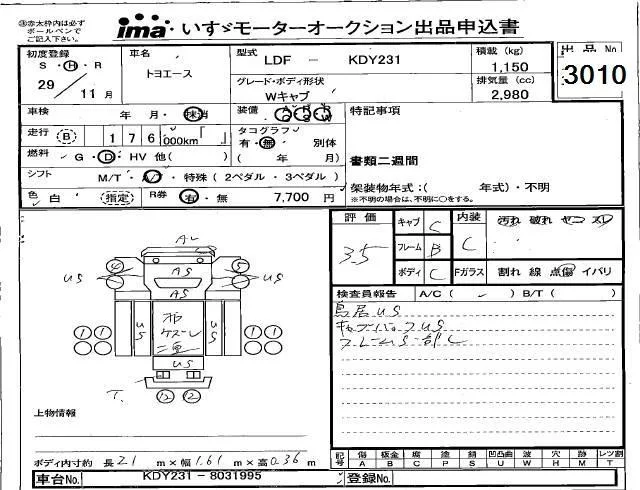 ㊟赤太枠内は必ず
ボールペンで
ご記入下さい。
ima いすゞモーターオークション出品申込書
初度登録
S・H・R
29 / 11 月
車名
トヨエース
型式 LDF － KDY231
グレード・ボディ形状
Wキャブ
積載 (kg)
1,150
排気量 (cc)
2,980
出品 No
3010
車検 年 月・抹消
装備 A P R
A S W
特記事項
走行 B 1 7 6 000km
タコグラフ
有・無 別体
( 年 月)
燃料 G・D・HV 他( )
書類二週間
シフト M/T・A/T・特殊(2ペダル・3ペダル)
架装物年式:( 年式)・不明
※不明の場合は、不明に○をする。
色 白 (指定) R券 有・無 7,700 円
評価 3.5
キャブ C
フレーム B
ボディ C
内装 C
汚れ 破れ ヤニ スレ
Fガラス 割れ 線 点傷 イバリ
検査員報告 A/C( ✓ ) B/T( )
鳥居US
キャブバックUS
フレームUS一部C
AL
4 AS 5
US US
AS
1 1 US US 1 1
2 2 2 2
US
T.
12 12
上物情報
ボディ内寸約 長 2.1 m×幅 1.61 m×高 0.36 m
記号 傷 板金 腐 塗 錆 凹凸曲 波 穴 跡 レツ割
A B C P S U W H M T
車台No. KDY231－8031995 登録No.